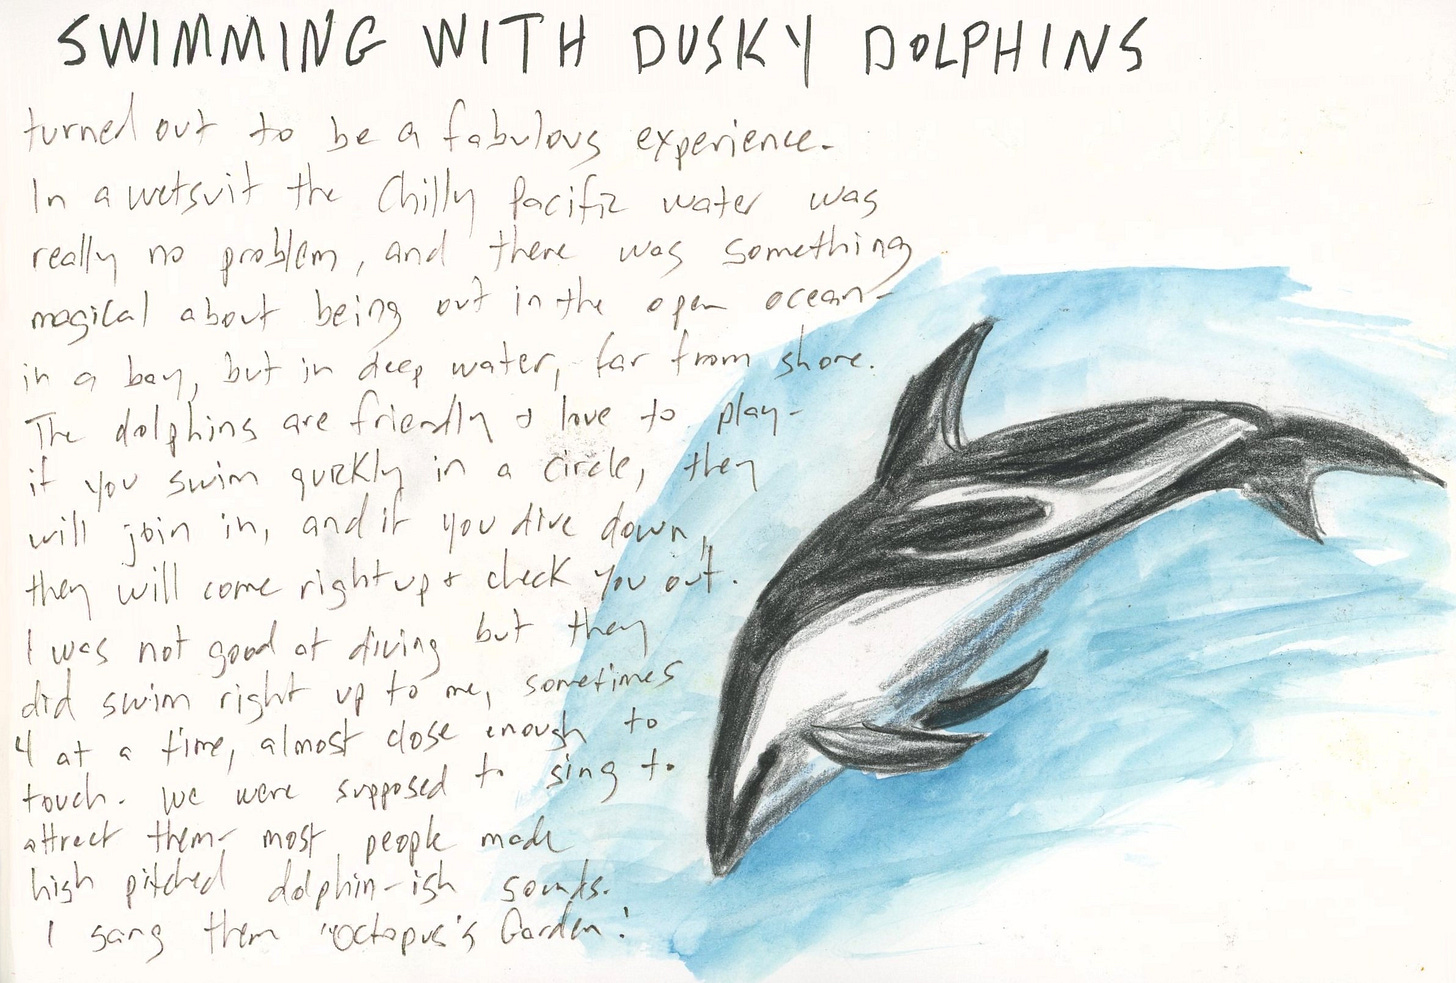 SWIMMING WITH DUSKY DOLPHINS
turned out to be a fabulous experience.
In a wetsuit the Chilly Pacific water was
really no problem, and there was something
magical about being out in the open ocean-
in a bay, but in deep water, far from shore.
The dolphins are friendly & love to play-
if you swim quickly in a circle, they
will join in, and if you dive down,
they will come right up & check you out.
I was not good at diving but they
did swim right up to me, sometimes
4 at a time, almost close enough to
touch. We were supposed to sing to
attract them- most people made
high pitched dolphin-ish sounds.
I sang them "Octopus's Garden"!